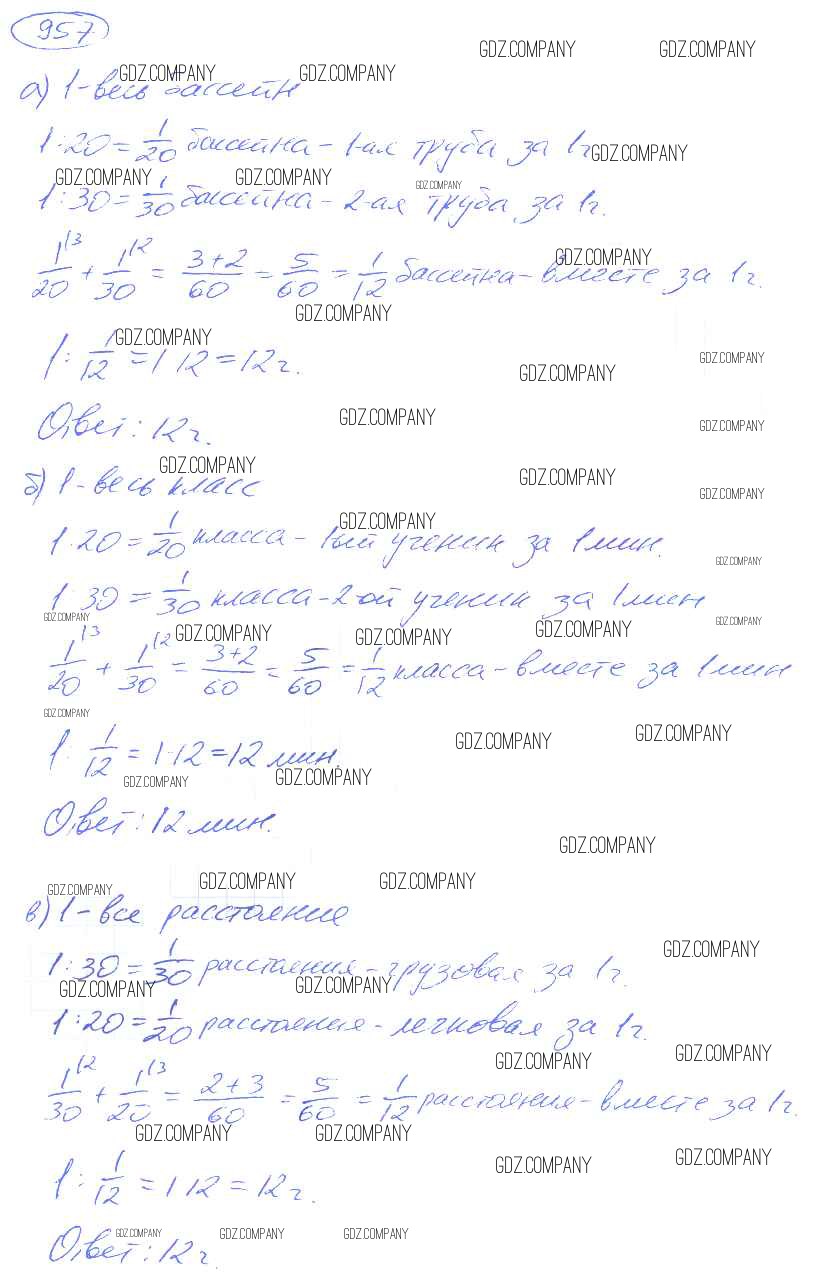 957
GDZ.COMPANY GDZ.COMPANY
GDZ.COMPANY GDZ.COMPANY
а) 1 - весь бассейн
1:20 = 1/20 бассейна - 1-ая труба за 1г
GDZ.COMPANY
GDZ.COMPANY GDZ.COMPANY GDZ.COMPANY
1:30 = 1/30 бассейна - 2-ая труба за 1г.
1/20 |3 + 1/30 |2 = 3+2/60 = 5/60 = 1/12 бассейна - вместе за 1г.
GDZ.COMPANY
GDZ.COMPANY
GDZ.COMPANY
1 : 1/12 = 1 12 = 12г.
GDZ.COMPANY
GDZ.COMPANY
GDZ.COMPANY
GDZ.COMPANY
Ответ: 12г.
GDZ.COMPANY GDZ.COMPANY
б) 1 - весь класс
GDZ.COMPANY
GDZ.COMPANY
1:20 = 1/20 класса - 1ый ученик за 1 мин.
GDZ.COMPANY
1:30 = 1/30 класса - 2-ой ученик за 1 мин
GDZ.COMPANY GDZ.COMPANY
GDZ.COMPANY GDZ.COMPANY GDZ.COMPANY
1/20 |3 + 1/30 |2 = 3+2/60 = 5/60 = 1/12 класса - вместе за 1 мин
GDZ.COMPANY
GDZ.COMPANY GDZ.COMPANY
1 : 1/12 = 1·12 = 12 мин.
GDZ.COMPANY GDZ.COMPANY
Ответ: 12 мин.
GDZ.COMPANY
GDZ.COMPANY GDZ.COMPANY GDZ.COMPANY
в) 1 - все расстояние
GDZ.COMPANY
1:30 = 1/30 расстояния - грузовая за 1г.
GDZ.COMPANY GDZ.COMPANY
1:20 = 1/20 расстояния - легковая за 1г.
GDZ.COMPANY GDZ.COMPANY
1/30 |2 + 1/20 |3 = 2+3/60 = 5/60 = 1/12 расстояния - вместе за 1г.
GDZ.COMPANY GDZ.COMPANY
GDZ.COMPANY GDZ.COMPANY
1 : 1/12 = 1 12 = 12г.
GDZ.COMPANY GDZ.COMPANY GDZ.COMPANY
Ответ: 12г.